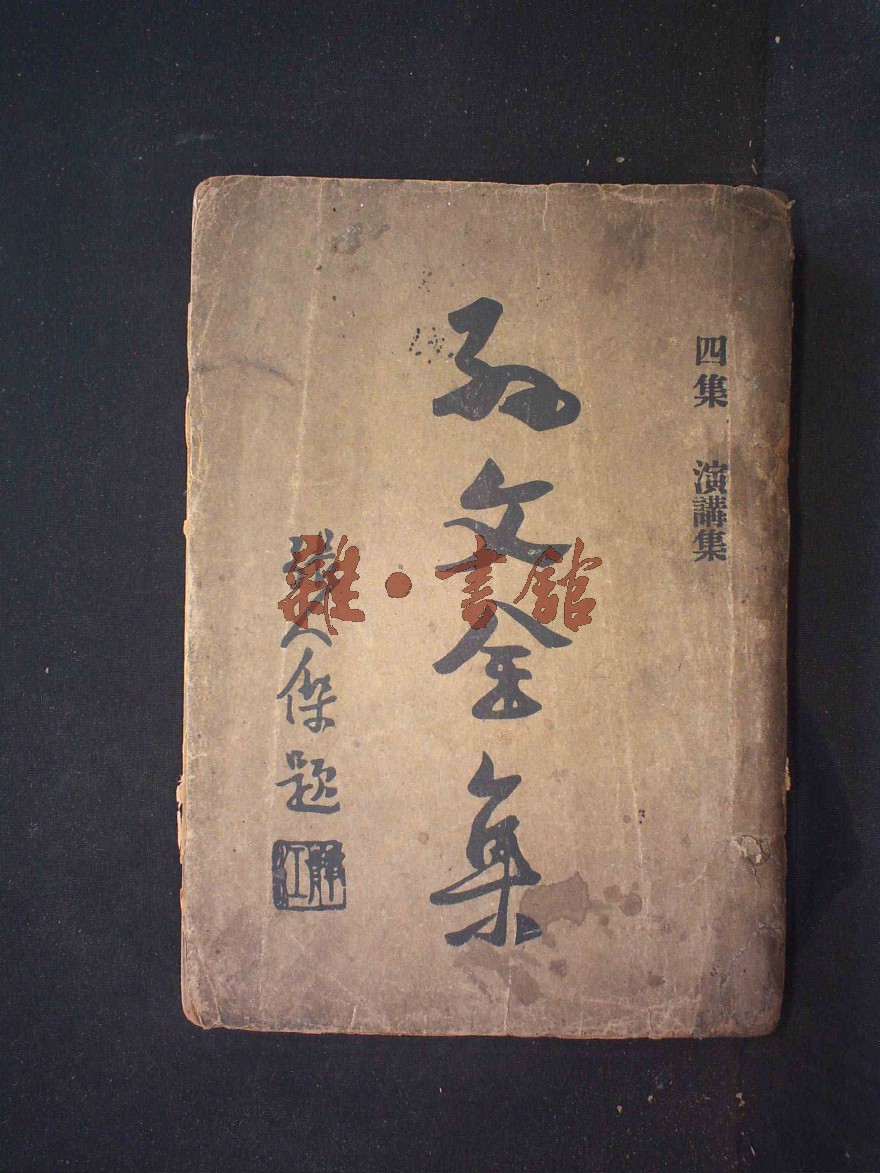 四集 演講集
孫文全集
張人傑題
靜江
雜·書館